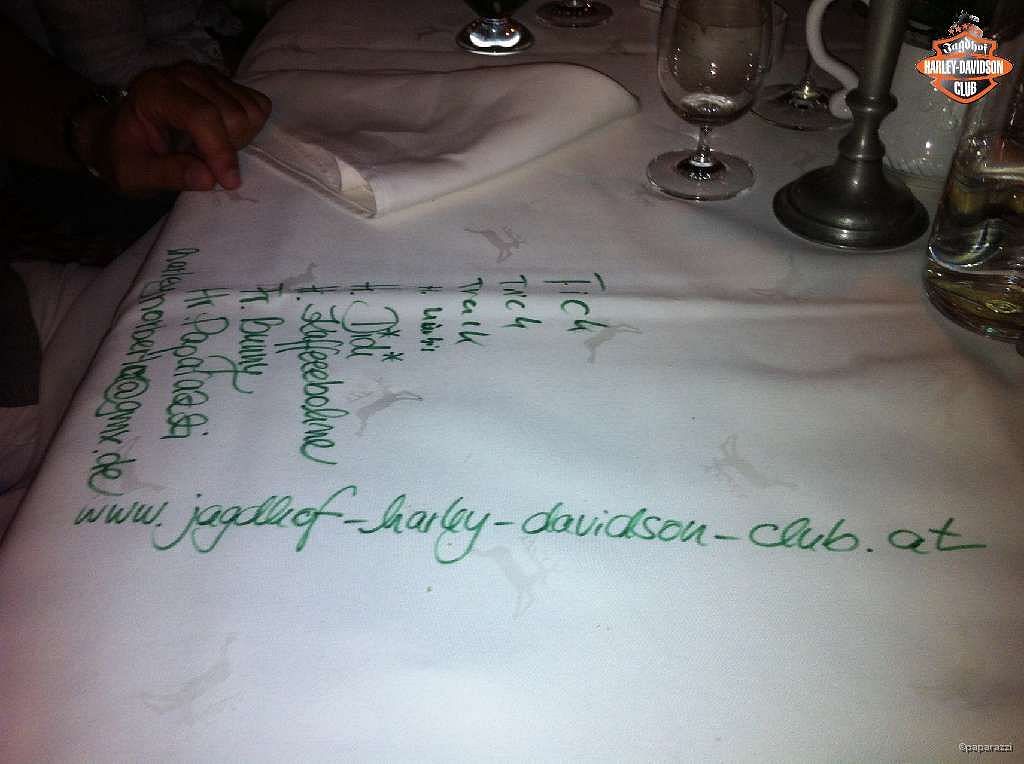 Jagdhof
HARLEY-DAVIDSON
CLUB
Tich
Trich
Track
H. Didi*
H. Kaffeebohne
Fr. Bunny
H. Paparazzi
www.jagdhof-harley-davidson-club.at
©paparazzi